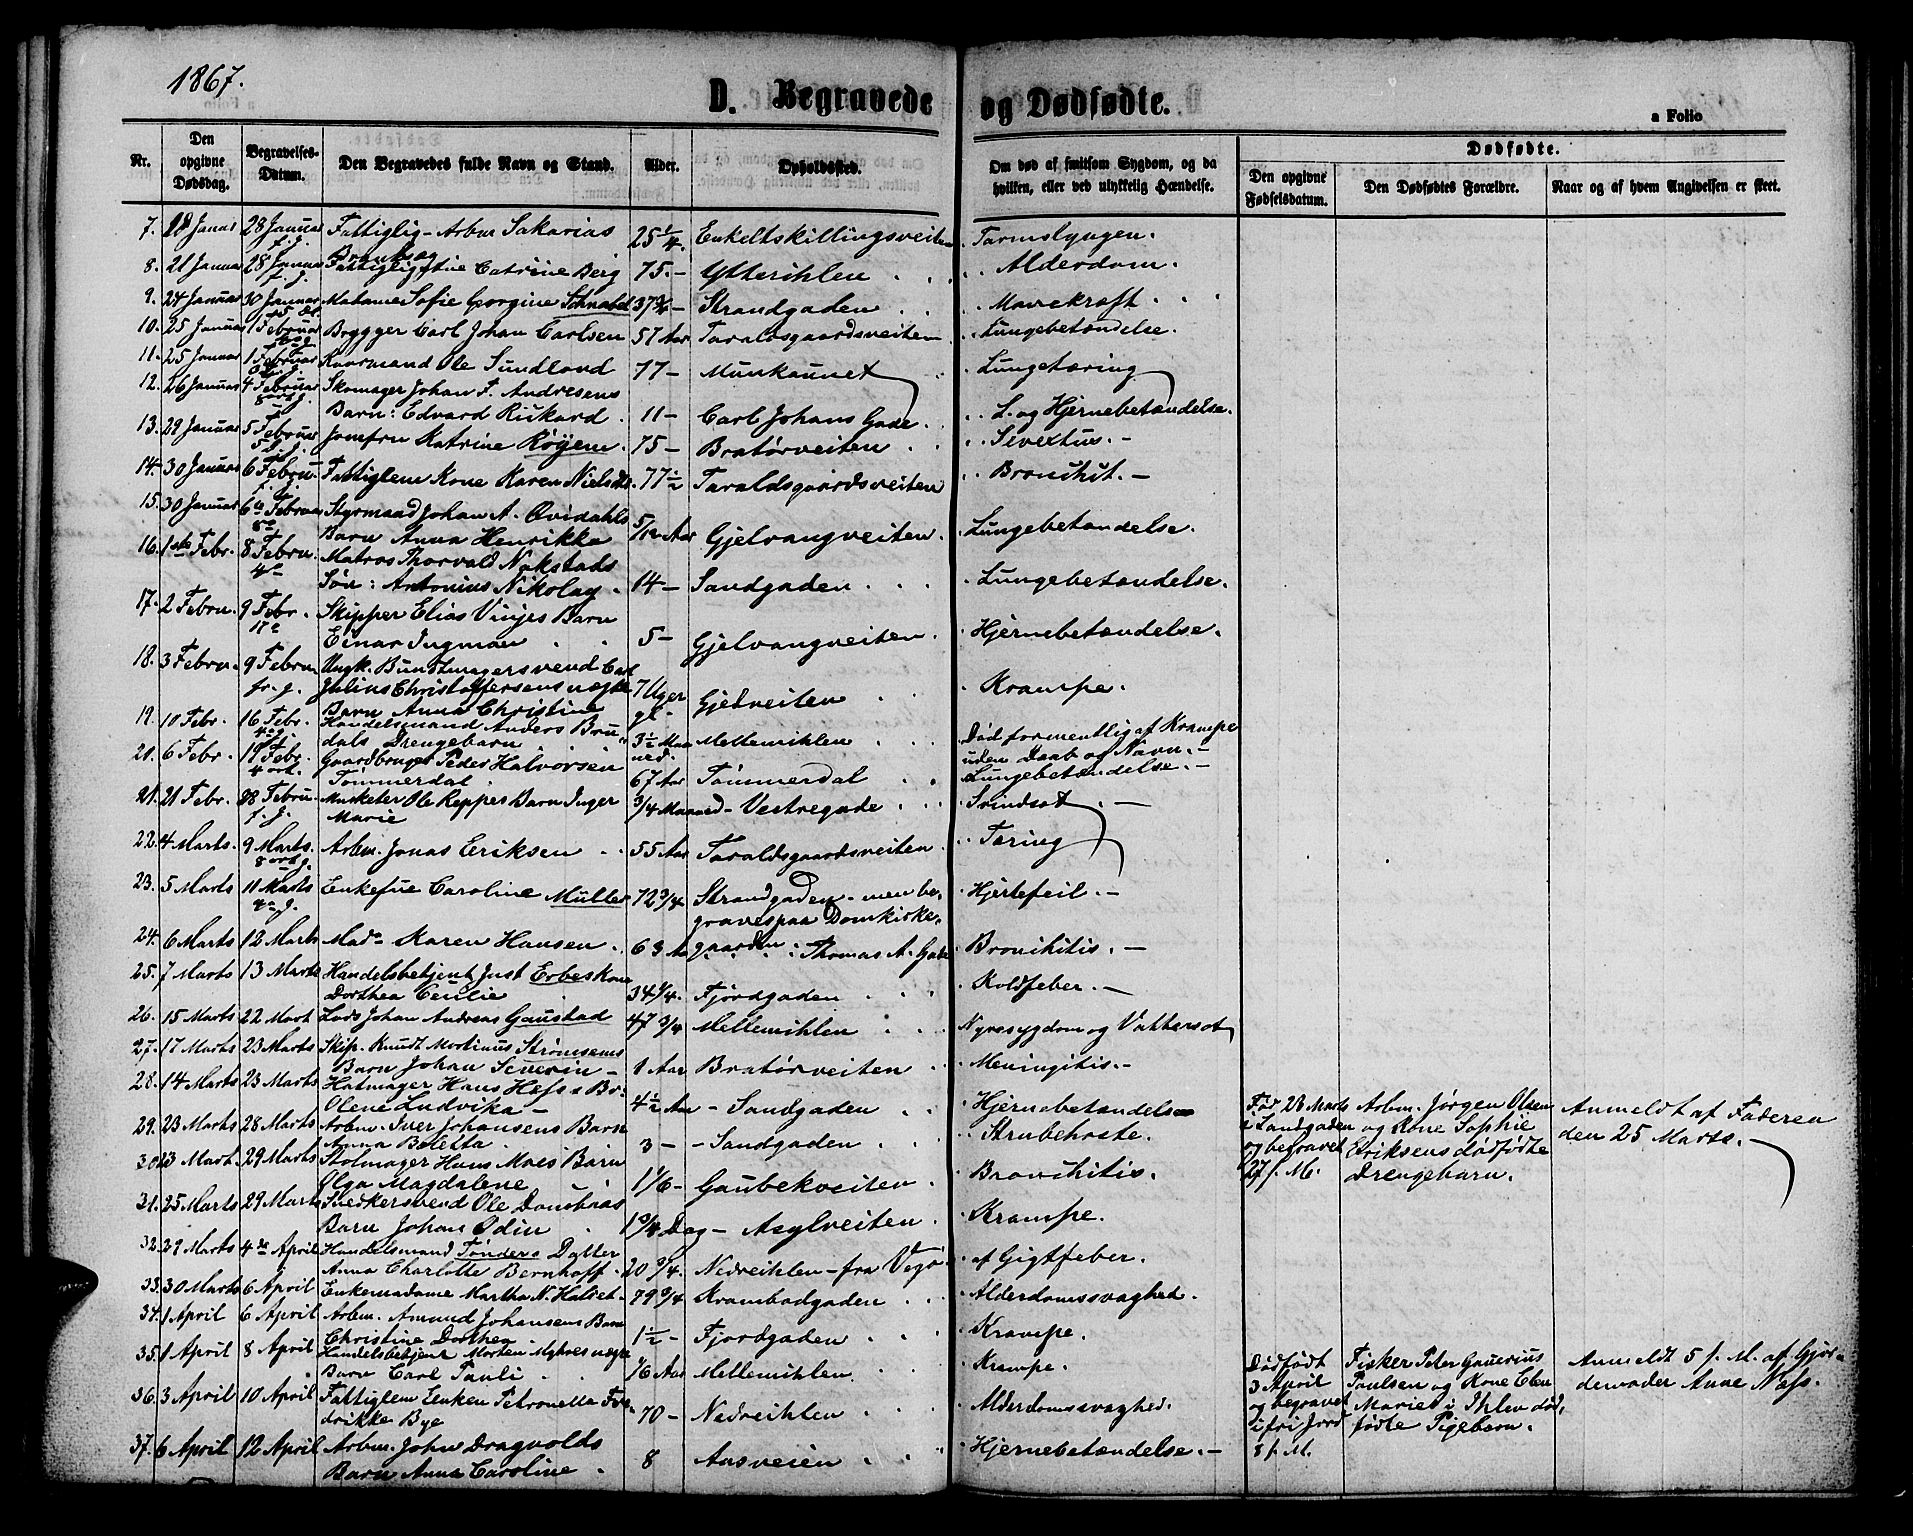 1867.
D. Begravede og Dødfødte.
a Folio
Nr.
Den opgivne Dødsdag.
Begravelses-Datum.
Den Begravedes fulde Navn og Stand.
Alder.
Opholdssted.
Om død af smitsom Sygdom, og da hvilken, eller ved ulykkelig Hændelse.
Dødfødte.
Den opgivne Fødselsdatum.
Den Dødfødtes Forældre.
Naar og af hvem Angivelsen er skeet.
7. 18 Januar 28 Januar Fattiglig - Arbm Sakarias 25 1/4. Enkeltskillingsveiten Tarmslyngen.
8. 21 Januar 28 Januar Fattiglig, Catrine Berg 75.- Ytterihlen Alderdom.
9. 24 Januar 30 Januar Madame Sofie Georgine Schnabel 37 3/4 - Strandgaden Mavekræft
10. 25 Januar 1 Februar Brygger Carl Johan Carlsen 57 Aar Taraldsgaardsveiten Lungebetændelse.
11. 25 Januar 1 Februar Ole Sundland 77 - Munkaunet Lungetæring
12. 26 Januar 4 Februar Skomager Johan F. Andresens
Barn: Edvard Rikard. 11 - Carl Johans Gade. L. og Hjernebetændelse.
13. 29 Januar 5 Februar Jomfru Katrine Røyem. 75 - Bratørveiten
14. 30 Januar 6 Februar Fattiglem Kone Karen Nielsdtr. 77 1/2 Taraldsgaardsveiten Bronchit. -
15. 30 Januar 6 Februar Styrmand Johan A. Qvidahls
Barn Anna Henrikke 5/12 Aar Gjelvangveiten. Lungebetændelse.
16. 1ste Febr. 8 Febru. Matros Thorvald Nykstads
Søn: Antonius Nikolay. 14 - Sandgaden Lungebetændelse.
17. 2 Febru. 9 Febr. Skipper Elias Vinjes Barn
Einar Ingman 5 - Gjelvangveiten. Hjernebetændelse.
18. 3 Febru. 9 Febru Ungk. Bundtmagersvend Carl
Julius Christoffersens uægte 7 Uger Gjetveiten Krampe.
Barn Anna Christine
19. 10 Febr. 16 Febr. Handelsmand Anders Bru-
dals Drengebarn 3 1/2 Maaned. Mellemihlen Død formentlig af Krampe
uden Daab og Navn. -
20. 6 Febr. 19 Febr. Gaardbruger Peder Halvorsen
Tømmerdal 67 Aar Tømmerdal Lungebetændelse. -
21. 21 Febr. 28 Febru. Musketer Ole Reppes Barn Inger
Marie 3/4 Maaned - Vestregade Svindsot. -
22. 4 Marts. 9 Marts. Arbm. Jonas Eriksen 55 Aar Taraldsgaardsveiten. Tæring
23. 5 Marts 11 Marts Enkefrue Caroline Müller 72 3/4 Strandgaden - men be- Hjertefeil. -
gravespaa Domkirke-
24. 6 Marts 12 Marts Mad. Karen Hansen. 63 Aar gaarden: Thomas A. Gade Bronchitis. -
25. 7 Marts 13 Marts Handelsbetjent Just Erbes Kone
Dorthea Cecilie 34 1/4. Fjordgaden Koldfeber. -
26. 15 Marts 22 Mart Lods Johan Andreas Gaustad 47 3/4 Mellemihlen Nyresygdom og Vattersot
27. 17 Marts 23 Marts Skip. Knudt Martinus Strømsems
Barn Johan Severin - 1 Aar Bratørveiten Meningitis. -
28. 14 Marts 23 Marts Hatmager Hans Hess's B.
Olene Ludvika - 4 1/2 Aar - Sandgaden Hjernebetændelse
29. 23 Marts 28 Marts Arbm. Iver Johansens Barn
Anna Beletta. 3 - - Sandgaden Strubehoste.
Fød. 23 Marts i Sandgaden og begravet 27 f. M.
Arbm. Jørgen Olsen og Kone Sophie Eriksens dødfødte Drengebarn.
Anmeldt af Faderen den 25 Marts. -
30. 23 Mart. 29 Marts Stolmager Hans Moes Barn
Olga Magdalene 1 1/6 - Gaubekveiten. Bronchitis.
31. 25 Marts 29 Marts Snedkersvend Ole Donsaas
Barn Johan Odin 1 3/4 Dag - Asylveiten. Krampe.
32. 29 Marts 4de April Handelsmand Tønders Datter
Anna Charlotte Bernhoff. 20 3/4. Nedreihlen - fra Vegø. af Gigtfeber.
33. 30 Marts 6 April Enkemadame Martha N. Halset. 79 3/4 Krambodgaden Alderdomssvaghed.
34. 1 April 6 April Arbm. Amund Johansens Barn
Christine Dorthea 1 1/2 - Fjordgaden Krampe.
35. 1 April 8 April Handelsbetjent Morten Myhres uægte
Barn Carl Pauli. Aar Mellemihlen. Krampe.
Dødfødt 3 April og begravet i fri Jord 8 f. M.
Fisker Peter Gauerius Paulsen og Kone Elen Maries i Ihlen dødfødte Pigebarn.
Anmeldt 5 f. M. af Gjordemoder Anne Næss.
36. 3 April 10 April Fattiglem Enken Petronelle Fre-
drikke Bye 70 - Nedreihlen Alderdomssvaghed.
37. 6 April 12 April Arbm. John Dragvolds
Barn Anna Caroline. 8 Aasveien Hjernebetændelse. -